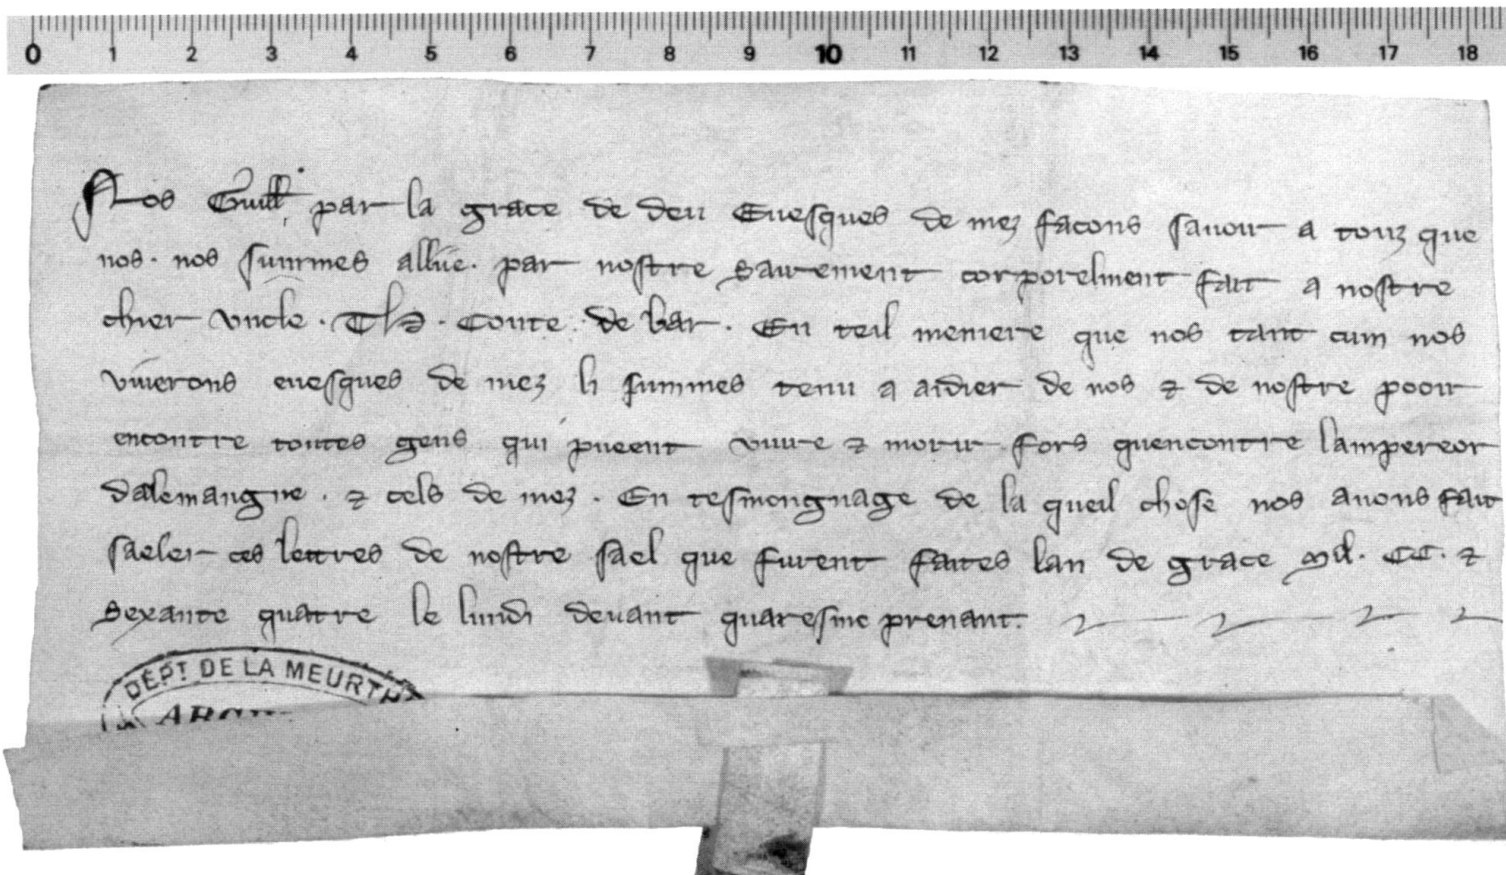 0 1 2 3 4 5 6 7 8 9 10 11 12 13 14 15 16 17 18
Nos Guill'. par la grace de deu Euesques de mez facons sauoir a touz que
nos. nos summes alliie. par nostre sairement corporelment fait a nostre
chier vncle. Th. Conte de bar. En teil meniere que nos tant cum nos
viuerons euesques de mez li summes tenu a aidier de nos ⁊ de nostre pooir
encontre toutes gens qui pueent viure ⁊ morir fors quencontre lampereor
dalemangne. ⁊ cels de mez. En tesmongnage de la queil chose nos auons fait
saeler ces lettres de nostre sael que furent faites lan de grace Mil. CC. ⁊
sexante quatre le lundi deuant quaresme prenant.
DÉPT DE LA MEURTH